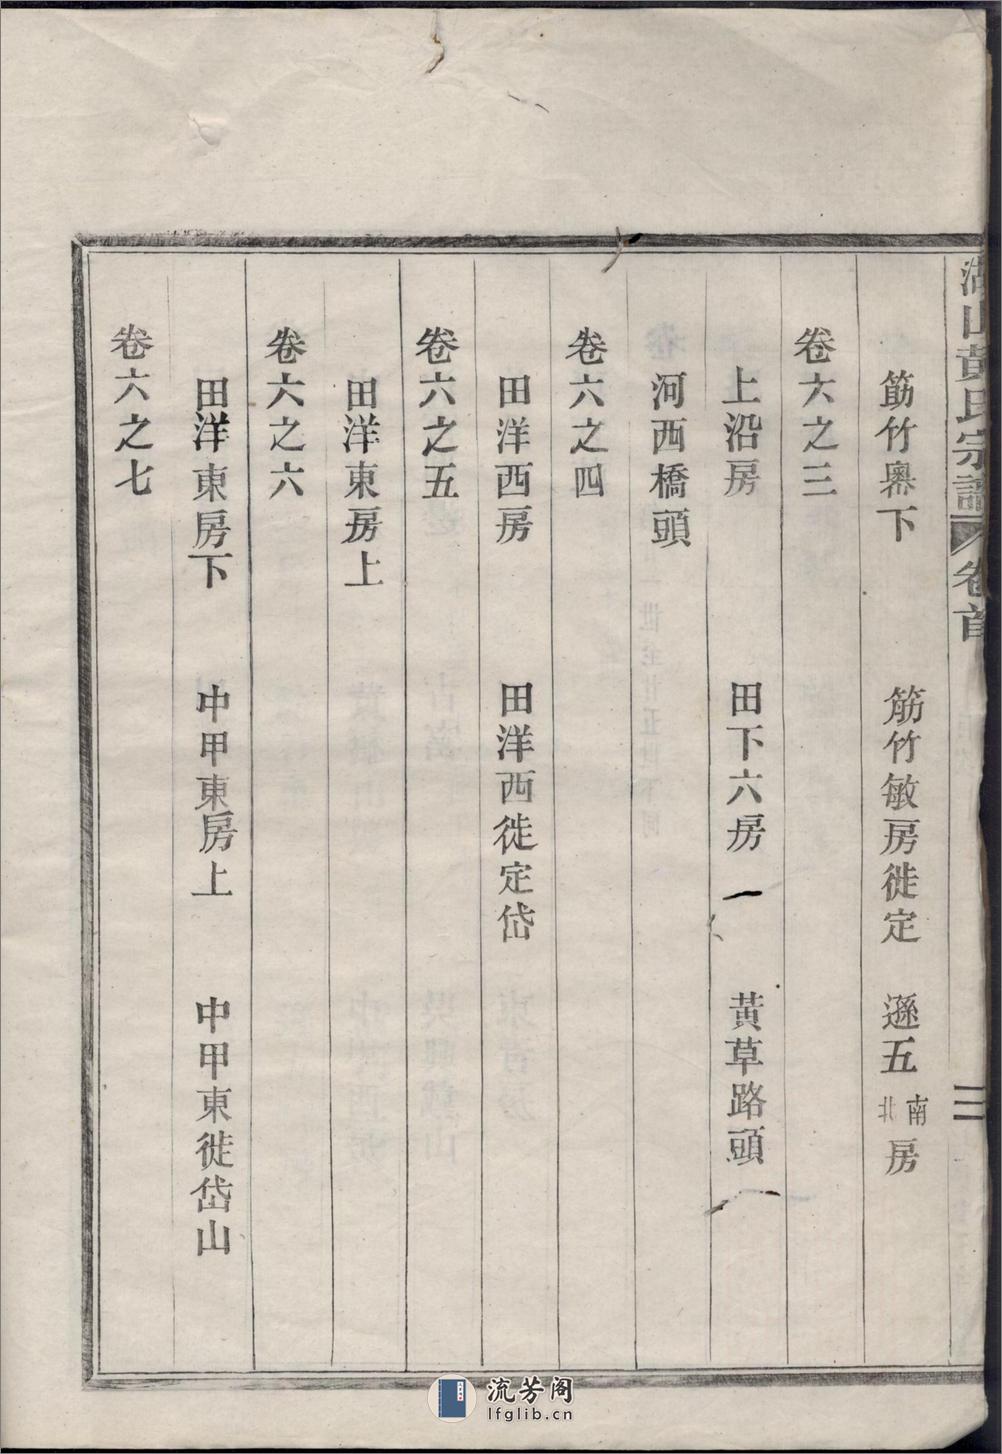 湖山黃氏宗譜 卷首 二
筋竹奧下 筋竹敏房徙定 遜五南北房
卷六之三
上沿房 田下六房 黃草路頭
河西橋頭
卷六之四
田洋西房 田洋西徙定岱
卷六之五
田洋東房上
卷六之六
田洋東房下 中甲東房上 中甲東徙岱山
卷六之七
流芳阁
lfglib.cn